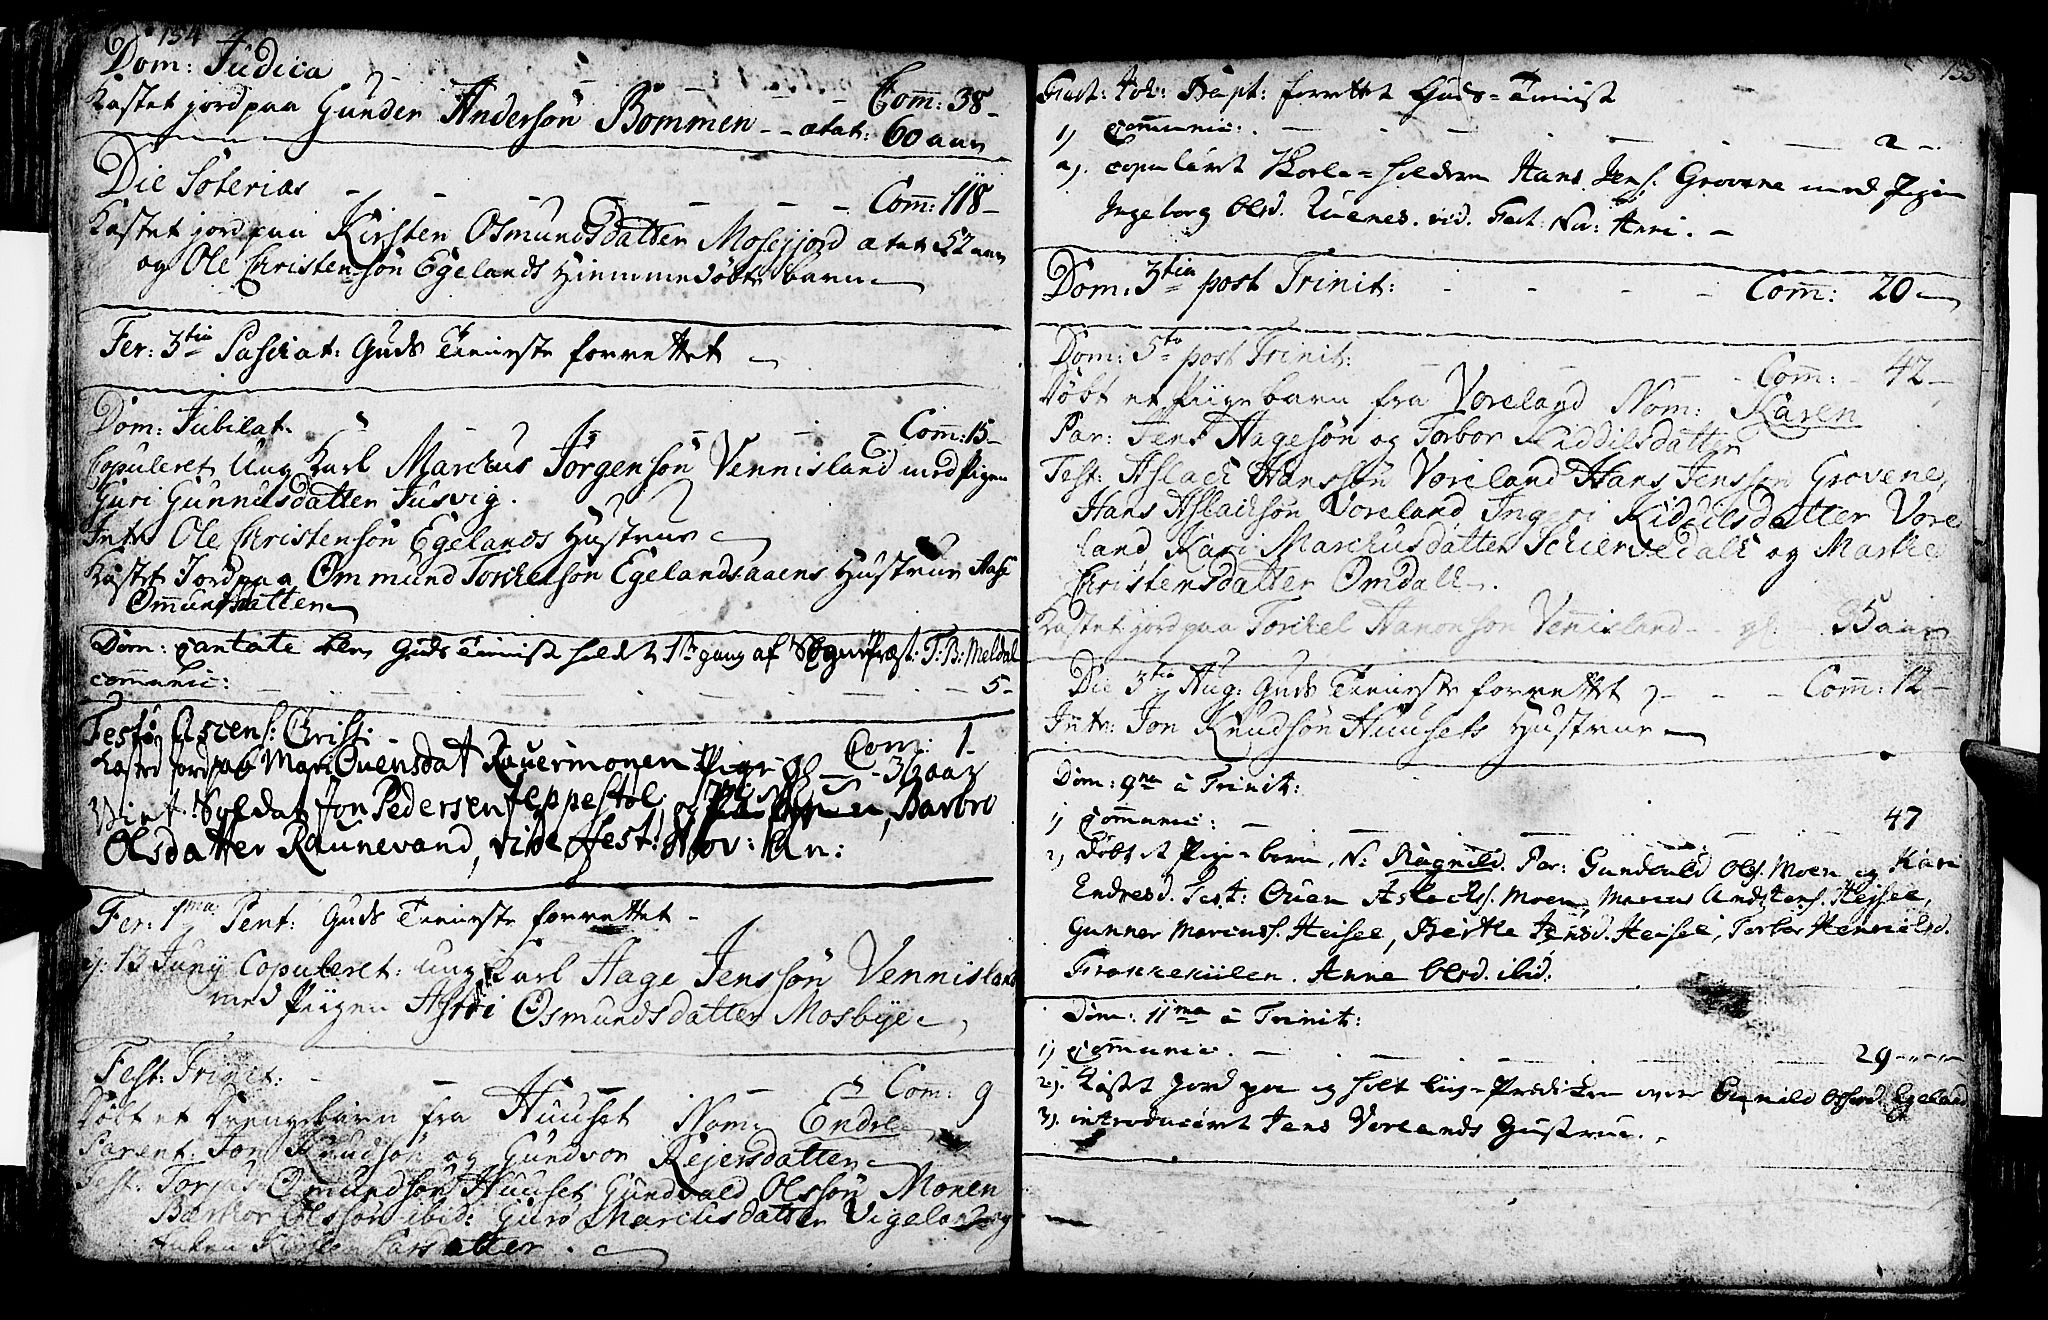 134
Dom: Judica
Com: 38 -
Kastet jord paa Gunder Andersøn Bommen - - ætat: 60 aar
Die Soterias - - - - - Com: 118 -
Kastet jord paa Kirsten Osmundsdatter Mosefjord ætat 52 aar
og Ole Christensøn Egelands Hiemmedøbte barn
Fer: 3tia Paschat: Guds Tieneste forrettet
Dom: Jubilat. - - - - Com: 15 -
Copuleret Ung Karl Marchus Jørgensøn Vennisland med Pigen
Guri Gunnulsdatter Jusvig.
Intr: Ole Christensøn Egelands Hustrue
Kastet Jord paa Ommund Torchelsøn Egelandsaaens Hustrue Aase
Omundsdatter
Dom: Cantate blev Guds Tienist holdt 1te gang af Sogne Præst: T: B: Meldal
communic: - - - - - 5 -
Festo Ascens: Christi. - Com: 1 -
Kasted Jord paa Mari Ouensdat Rauermonen Pige gl - - 36 aar
Viet Soldat Jon Pedersen Jeppestol og Barbro
Olsdatter Raunevand, vide Fest: Nov: An:
Fer: 1ma Pent: Guds Tieneste forrettet -
d: 13 Junij Copuleret: ung Karl Aage Jenssøn Vennisland
med Piigen Astri Osmundsdatter Mosbye
Fest: Trinit: - - - Com: 9
Døbt et Drengebarn fra Huuset Nom: Endre
Parent: Jon Knudsøn og Gundvor Rejersdatter
Test: Torjus Omundsøn Huuset Gundvald Olssøn Monen
Olssøn ibid: Guro Marcusdatter Vigeland og
Kirsten Larsdatter.
135
Fest: Joh: Bapt: forrettet Guds-Tienist
1) Communic: - - - - - 2 -
2). copuleret Skole-holderen Hans Jens: Grovene med Pigen
Ingeborg Olsd. vid. Fest: No: Anni. -
Dom: 3tia post Trinit: - - - - Com: 20
Dom: 5to post Trinit: - - - Com: - 42 -
Døbt et Piige barn fra Voreland Nom: Karen
Par: Jens Aagesøn og Torbor Kiddilsdatter
Test: Aslach Hanssøn Voreland Hans Jenssøn Grovene,
Hans Aslachsøn Voreland Ingeri Kiddilsdatter Vore
land Kari Marchusdatter Schiervedall og Marthe
Christensdatter Omdall.
Kastet jord paa Torchel Aanonsøn Venisland - gl: 35 aar
Die 3tia Aug: Guds Tieneste forrettet - - - Com: 12 -
Intr: Jon Knudsøn Huusets Hustrue
Dom: 9na à Trinit:
1) Communic: - - - - 47
2) Døbt et Pige-barn, N: Ragnild. Par: Gundvald Ols. Moen og Kari
Endresd. Test: Ouen Aslachs. Moen, Marcus Andstens. Heisel,
Gunner Marcuss. Heisel, Birthe Jensd. Heisel, Torbor Henrichsd.
Anne Olsd. ibid:
Dom: 11ma à Trinit:
1) Communic. - - - - 29 - - - -
2). Kastet Jord paa og holt Liig-Prædiken over Gunild Olsd Egeland
3). introduceret Jens Vorlands Hustrue.